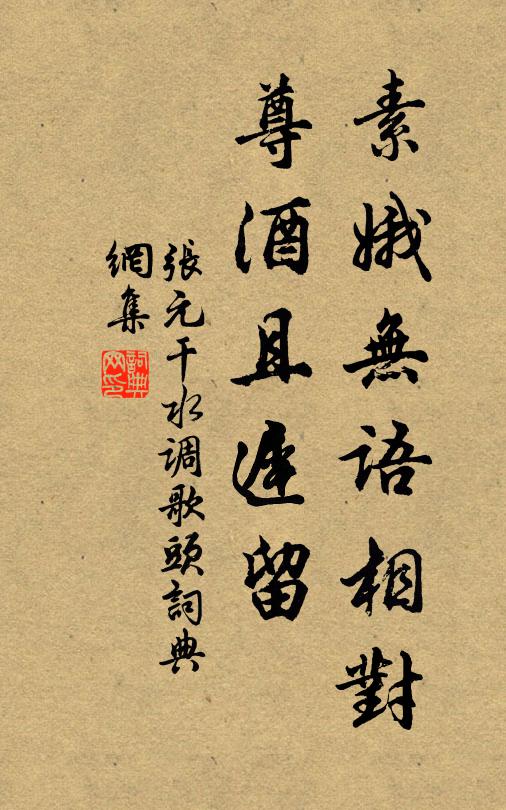 素娥無語相對
尊酒且遲留
張元干水调歌頭詞典
網集
詞典網印